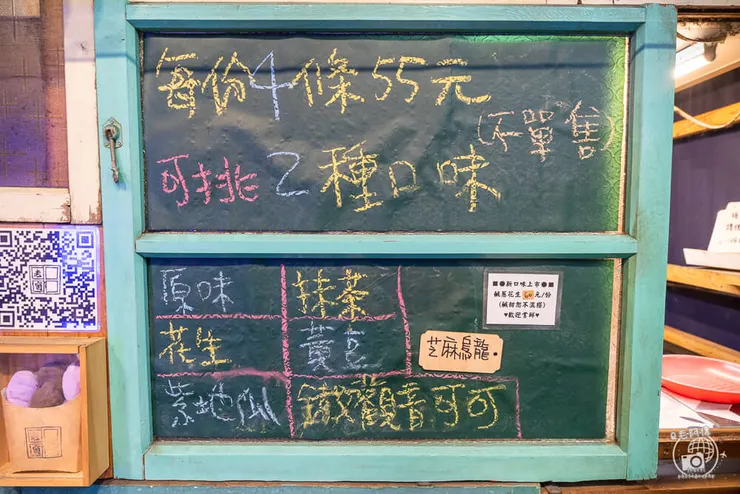 每份4條55元
(不單售)
可挑2種口味
原味
抹茶
花生
黃豆
紫地瓜
鐵觀音可可
芝麻烏龍
新口味上市
鹹蔥花生60元/份
(鹹甜恕不混搭)
♥歡迎嘗鮮♥